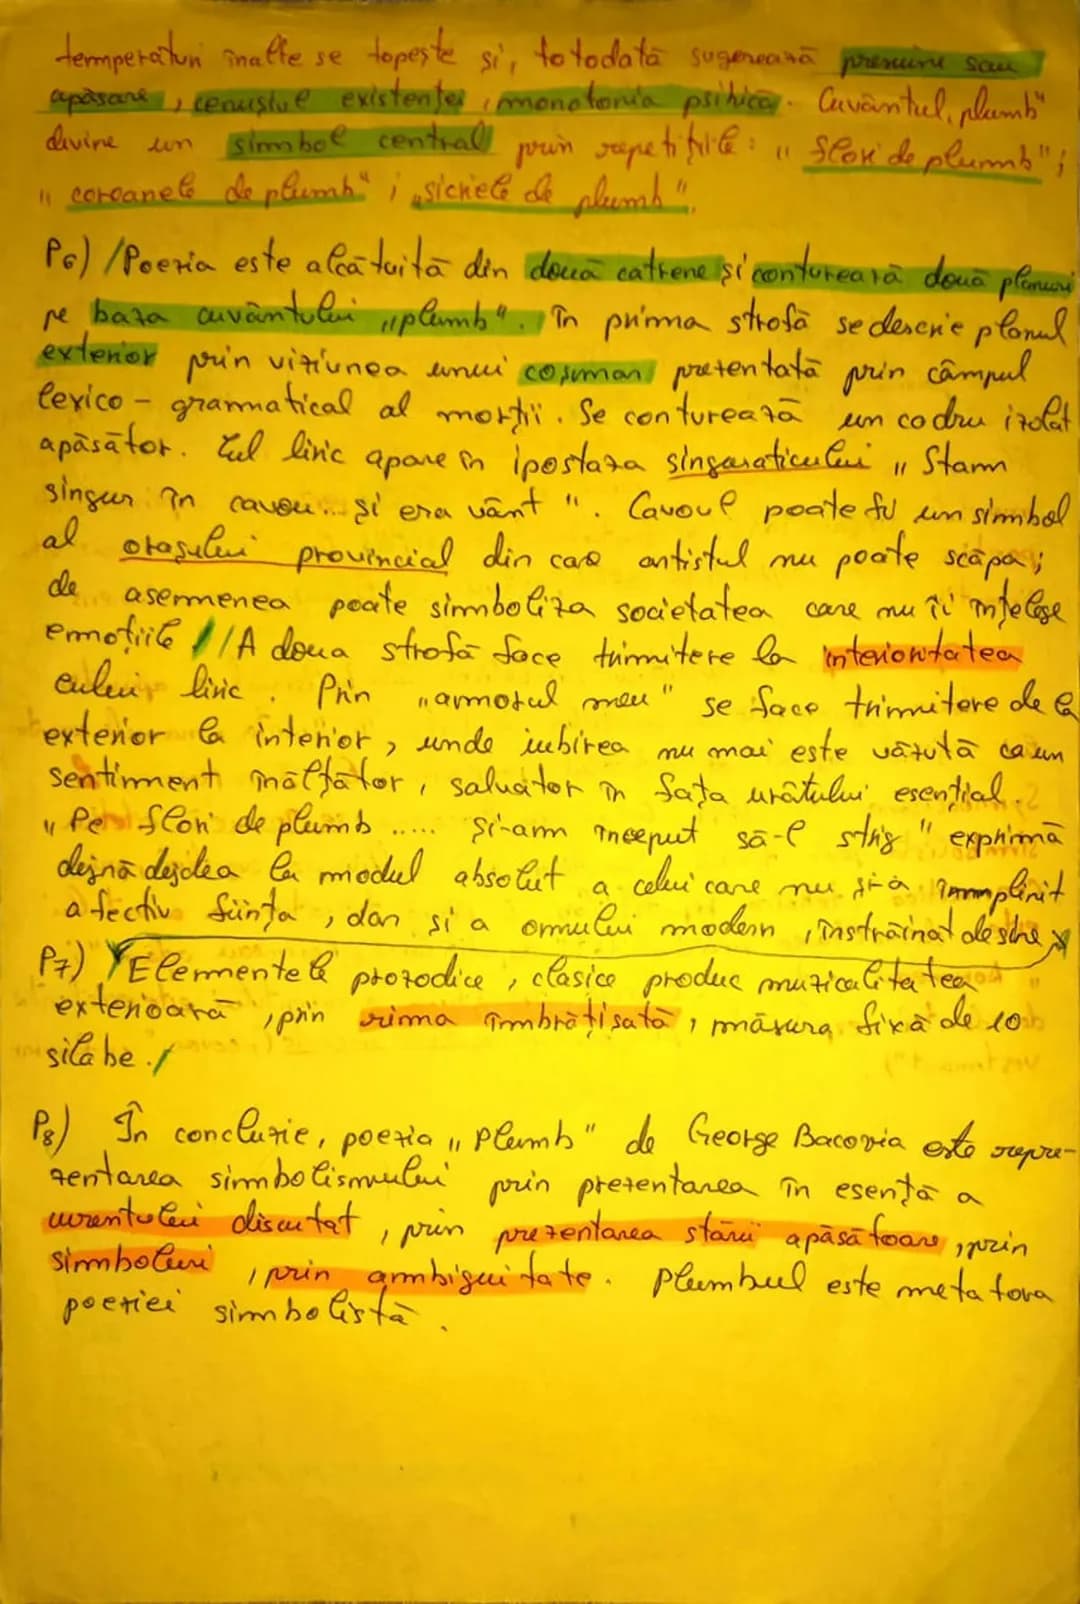 temperaturi înalte se topește și, totodată sugerează presiune sau
apăsare, cenușiul existenței, monotonia psihică. Cuvântul „plumb"
divine un simbol central prin repetițiile: „flori de plumb";
„coroanele de plumb"; „sicriele de plumb".
P6) /Poezia este alcătuită din două catrene și conturează două planuri
pe baza cuvântului „plumb". În prima strofă se descrie planul
exterior prin viziunea unui coșmar prezentată prin câmpul
lexico-gramatical al morții. Se conturează un codru izolat
apăsător. Eul liric apare în ipostaza singuraticului „Stam
singur în cavou... și era vânt". Cavoul poate fi un simbol
al orașului provincial din care artistul nu poate scăpa;
de asemenea poate simboliza societatea care nu îi înțelege
emoțiile //A doua strofă face trimitere la interioritatea
eului liric. Prin „amorul meu" se face trimitere de la
exterior la interior, unde iubirea nu mai este văzută ca un
sentiment înălțător, salvator în fața urâtului esențial.
„Pe flori de plumb ..... și-am început să-l strig" exprimă
deznădejdea la modul absolut a celui care nu și-a împlinit
afectiv ființa, dar și a omului modern, înstrăinat de sine
P7) Elementele prozodice, clasice produc muzicalitatea
exterioară, prin rima îmbrățișată, măsura fixă de 10
silabe./
P8) În concluzie, poezia „Plumb" de George Bacovia este repre-
zentarea simbolismului prin prezentarea în esență a
curentului discutat, prin prezentarea stării apăsătoare, prin
simboluri, prin ambiguitate. Plumbul este metafora
poeziei simbolistă.